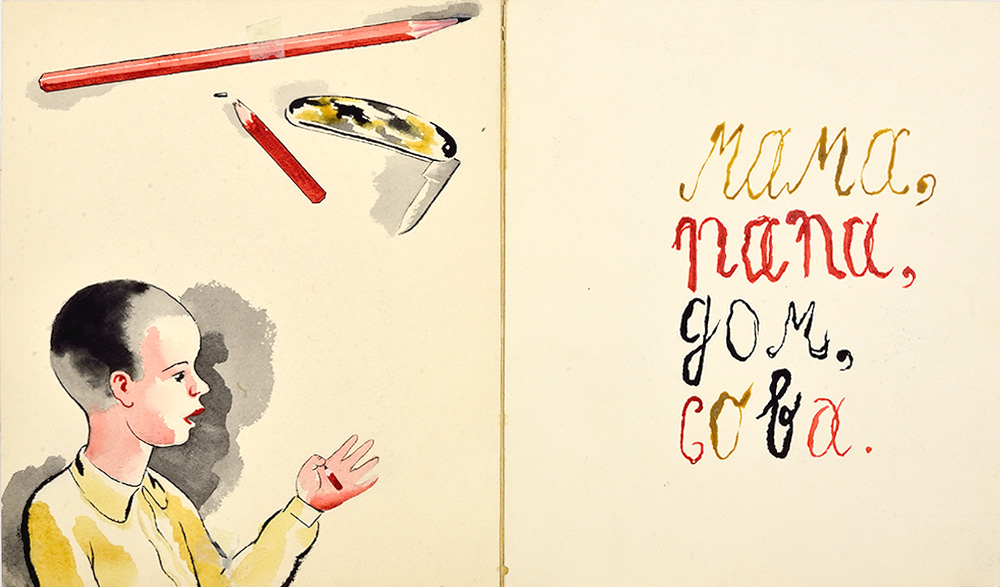 мама,
папа,
дом,
сова.